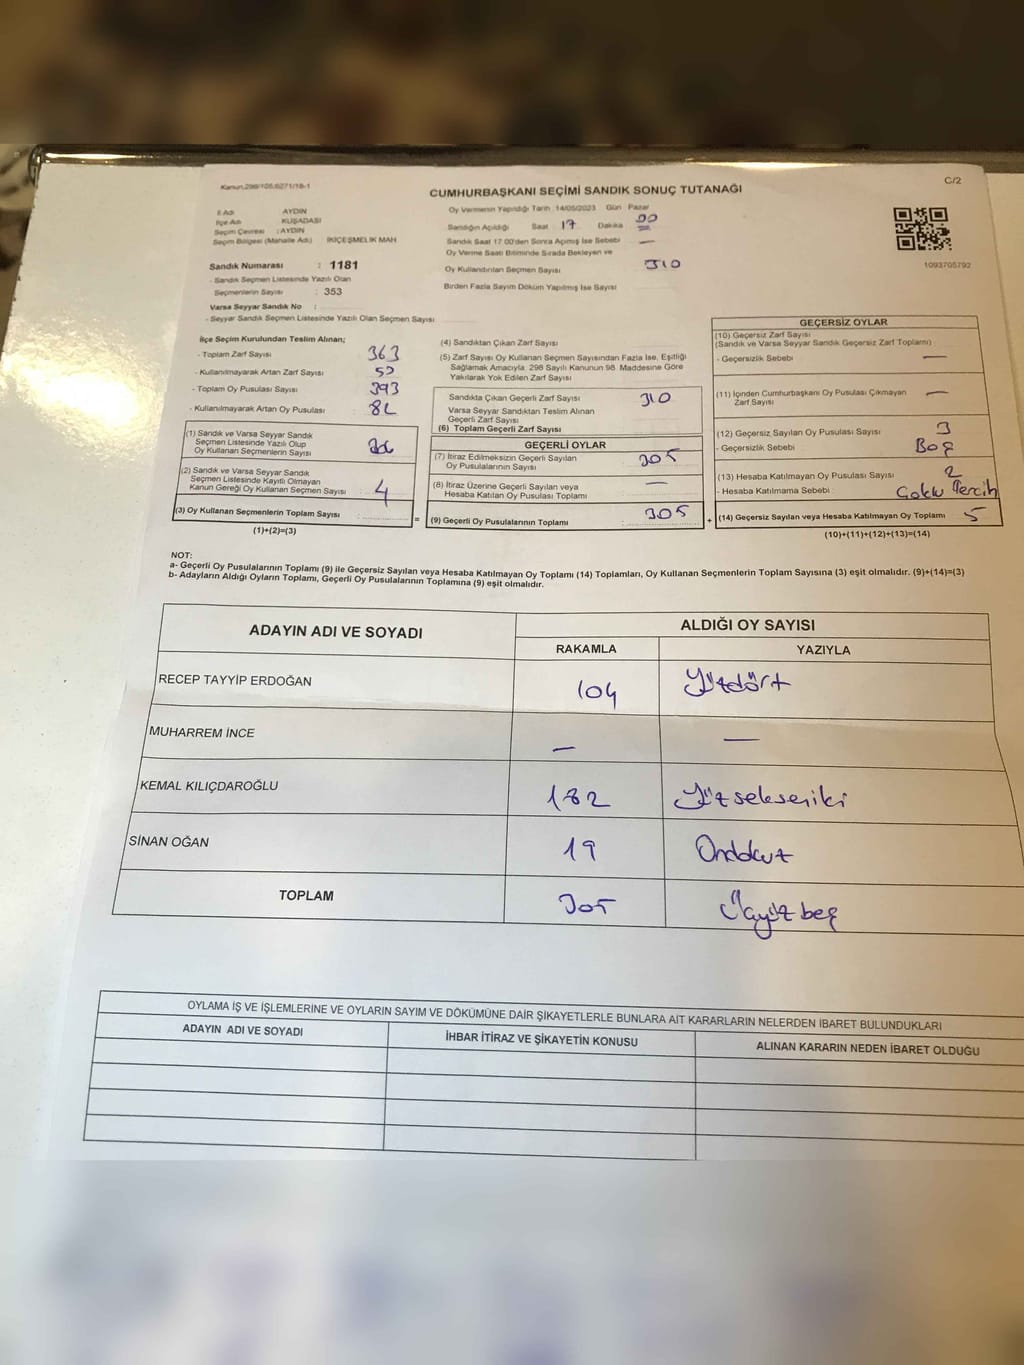 Kanun.298/105,6271/18-1
C/2
CUMHURBAŞKANI SEÇİMİ SANDIK SONUÇ TUTANAĞI
İl Adı AYDIN
İlçe Adı KUŞADASI
Seçim Çevresi : AYDIN
Seçim Bölgesi (Mahalle Adı) İKİÇEŞMELİK MAH
Sandık Numarası : 1181
- Sandık Seçmen Listesinde Yazılı Olan
Seçmenlerin Sayısı : 353
Varsa Seyyar Sandık No :
- Seyyar Sandık Seçmen Listesinde Yazılı Olan Seçmen Sayısı
Oy Vermenin Yapıldığı Tarih :14/05/2023 Gün Pazar
Sandığın Açıldığı Saat 17 Dakika 00
Sandık Saat 17:00'den Sonra Açılmış İse Sebebi —
Oy Verme Saati Bitiminde Sırada Bekleyen ve
Oy Kullandırılan Seçmen Sayısı 310
Birden Fazla Sayım Döküm Yapılmış İse Sayısı
1093705792
İlçe Seçim Kurulundan Teslim Alınan;
- Toplam Zarf Sayısı 363
- Kullanılmayarak Artan Zarf Sayısı
- Toplam Oy Pusulası Sayısı 393
- Kullanılmayarak Artan Oy Pusulası
(1) Sandık ve Varsa Seyyar Sandık
Seçmen Listesinde Yazılı Olup
Oy Kullanan Seçmenlerin Sayısı
(2) Sandık ve Varsa Seyyar Sandık
Seçmen Listesinde Kayıtlı Olmayan
Kanun Gereği Oy Kullanan Seçmen Sayısı 4
(3) Oy Kullanan Seçmenlerin Toplam Sayısı
(1)+(2)=(3)
(4) Sandıktan Çıkan Zarf Sayısı
(5) Zarf Sayısı Oy Kullanan Seçmen Sayısından Fazla İse, Eşitliği
Sağlamak Amacıyla, 298 Sayılı Kanunun 98. Maddesine Göre
Yakılarak Yok Edilen Zarf Sayısı
Sandıkta Çıkan Geçerli Zarf Sayısı 310
Varsa Seyyar Sandıktan Teslim Alınan
Geçerli Zarf Sayısı
(6) Toplam Geçerli Zarf Sayısı
GEÇERLİ OYLAR
(7) İtiraz Edilmeksizin Geçerli Sayılan
Oy Pusulalarının Sayısı 305
(8) İtiraz Üzerine Geçerli Sayılan veya
Hesaba Katılan Oy Pusulası Toplamı —
= (9) Geçerli Oy Pusulalarının Toplamı 305
GEÇERSİZ OYLAR
(10) Geçersiz Zarf Sayısı
(Sandık ve Varsa Seyyar Sandık Geçersiz Zarf Toplamı)
- Geçersizlik Sebebi —
(11) İçinden Cumhurbaşkanı Oy Pusulası Çıkmayan
Zarf Sayısı —
(12) Geçersiz Sayılan Oy Pusulası Sayısı 3
- Geçersizlik Sebebi Boş
(13) Hesaba Katılmayan Oy Pusulası Sayısı 2
- Hesaba Katılmama Sebebi : Çoklu Tercih
+ (14) Geçersiz Sayılan veya Hesaba Katılmayan Oy Toplamı 5
(10)+(11)+(12)+(13)=(14)
NOT:
a- Geçerli Oy Pusulalarının Toplamı (9) ile Geçersiz Sayılan veya Hesaba Katılmayan Oy Toplamı (14) Toplamları, Oy Kullanan Seçmenlerin Toplam Sayısına (3) eşit olmalıdır. (9)+(14)=(3)
b- Adayların Aldığı Oyların Toplamı, Geçerli Oy Pusulalarının Toplamına (9) eşit olmalıdır.
ADAYIN ADI VE SOYADI
ALDIĞI OY SAYISI
RAKAMLA YAZIYLA
RECEP TAYYİP ERDOĞAN 104 Yüzdört
MUHARREM İNCE — —
KEMAL KILIÇDAROĞLU 182 Yüzsekseniki
SİNAN OĞAN 19 Ondokuz
TOPLAM 305 Üçyüzbeş
OYLAMA İŞ VE İŞLEMLERİNE VE OYLARIN SAYIM VE DÖKÜMÜNE DAİR ŞİKAYETLERLE BUNLARA AİT KARARLARIN NELERDEN İBARET BULUNDUKLARI
ADAYIN ADI VE SOYADI İHBAR İTİRAZ VE ŞİKAYETİN KONUSU ALINAN KARARIN NEDEN İBARET OLDUĞU